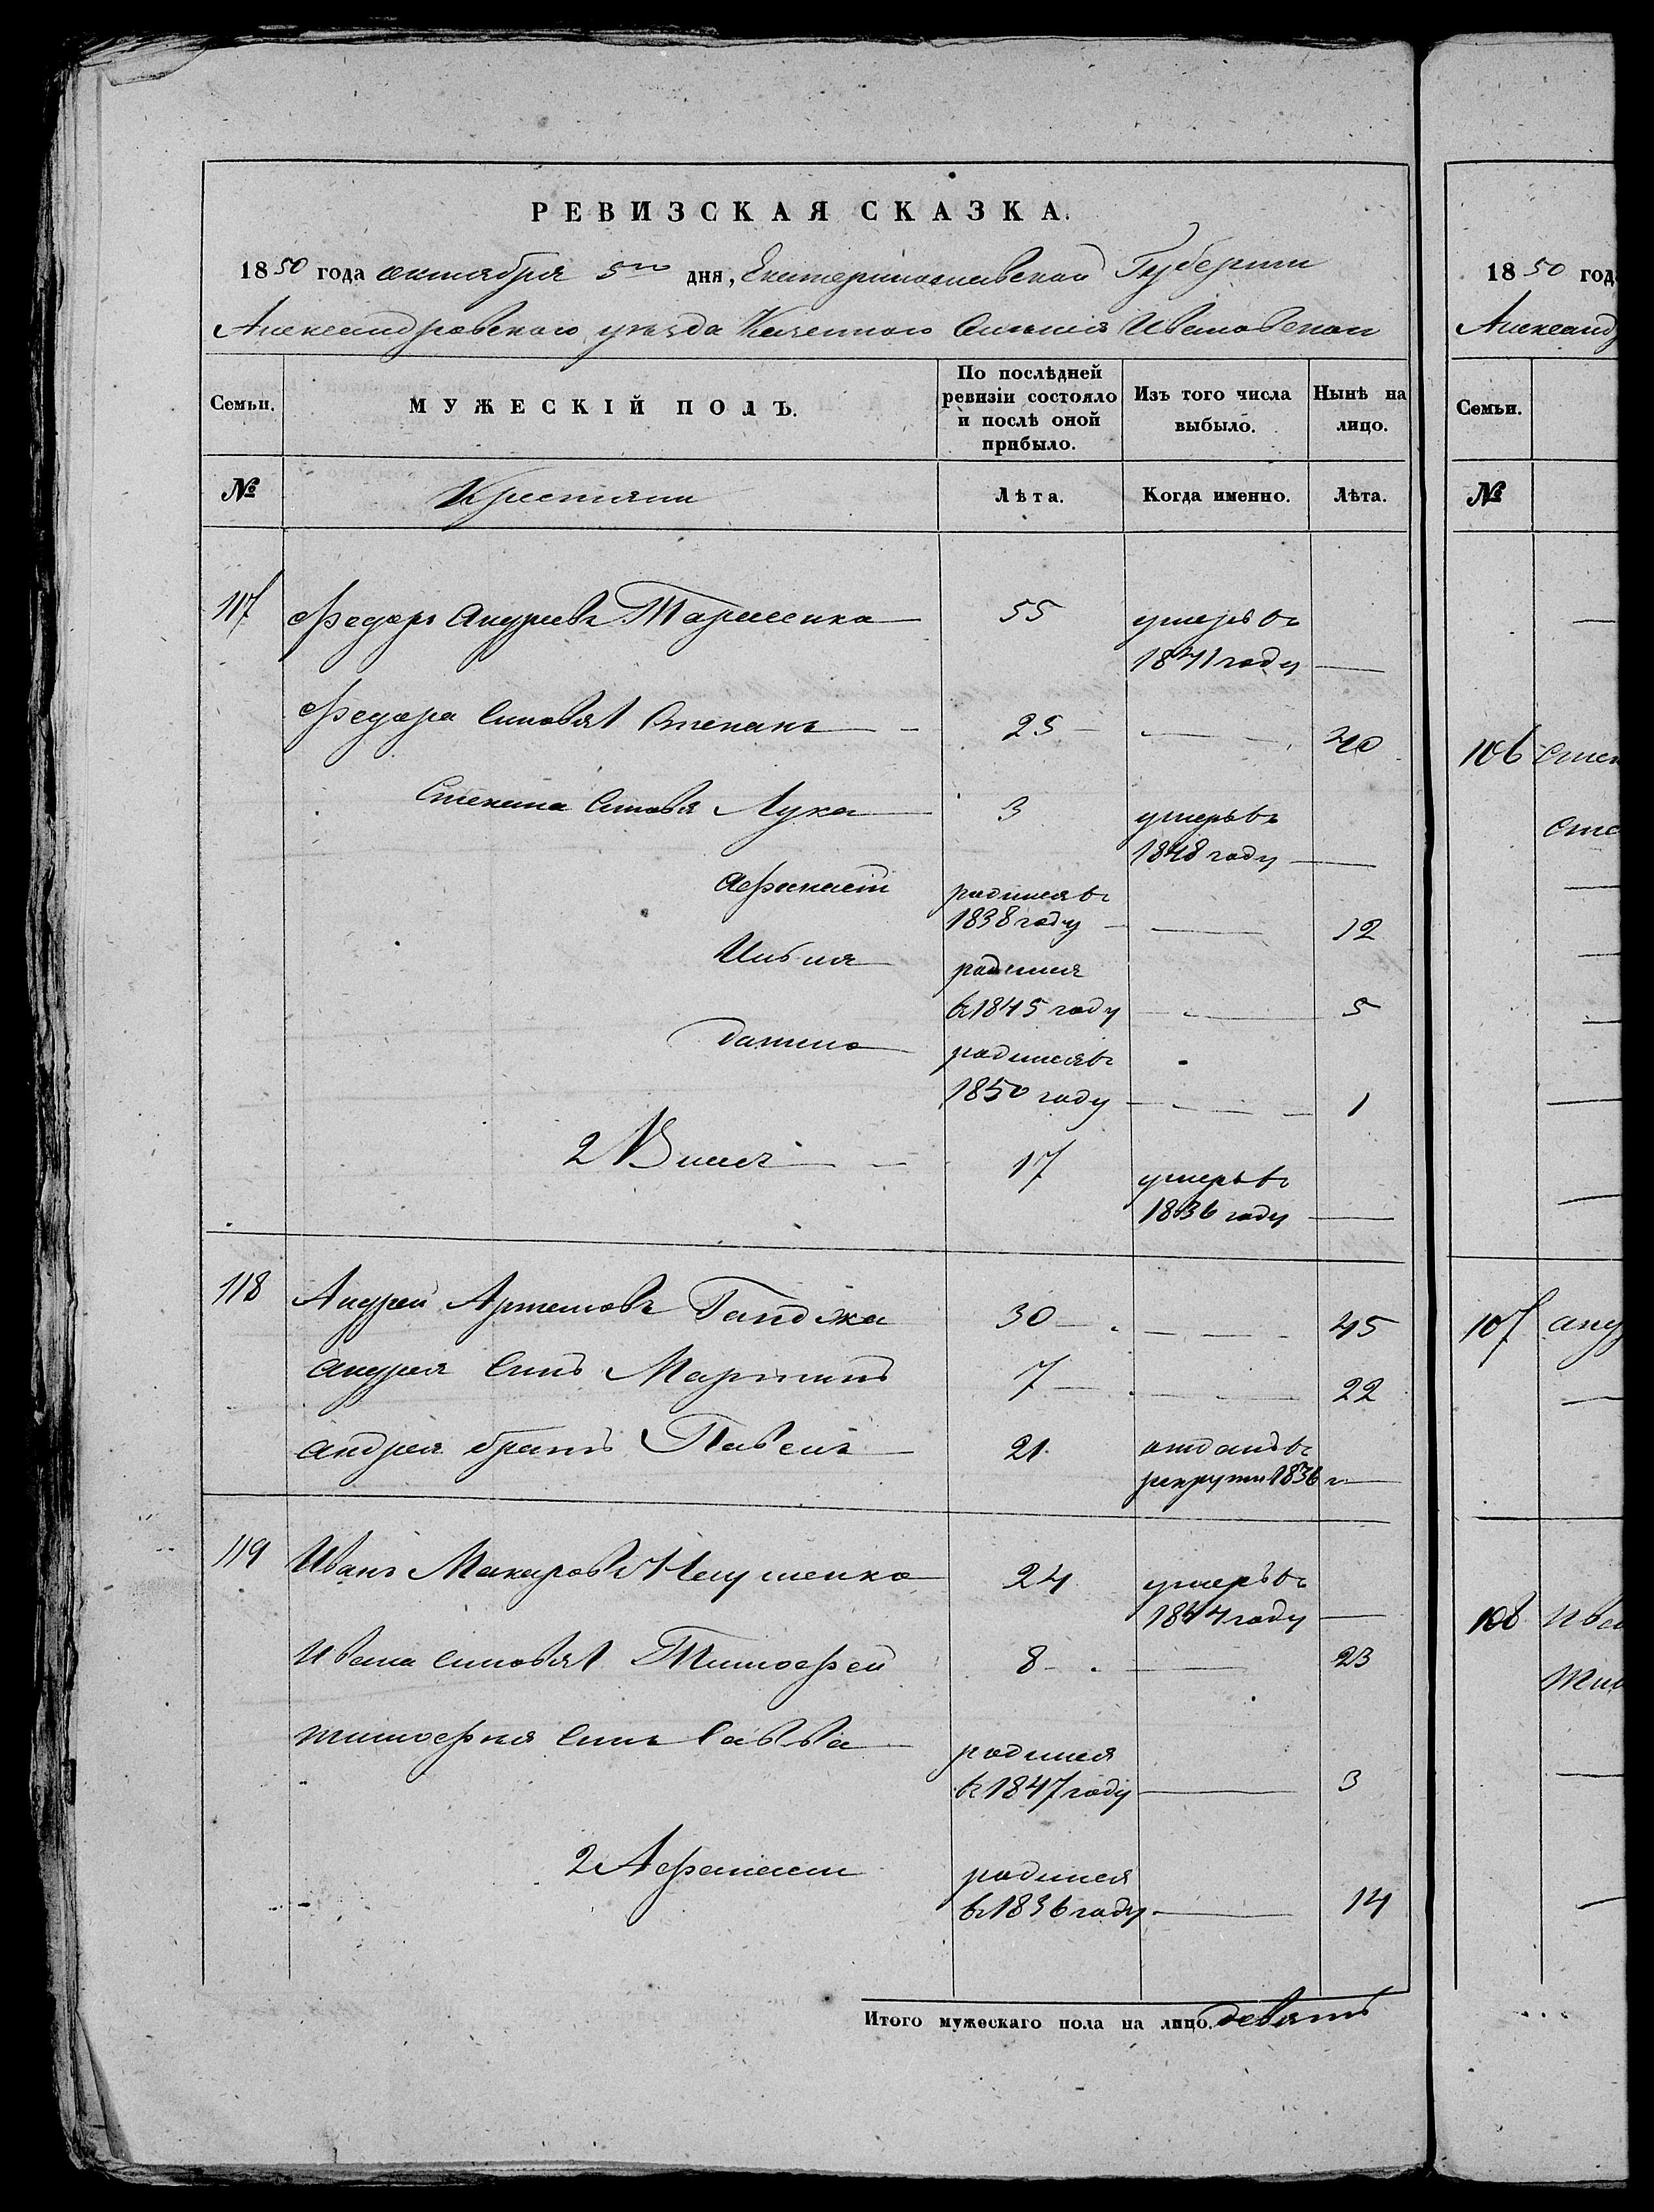 РЕВИЗСКАЯ СКАЗКА.
1850 года октября 5го дня, Екатеринославской Губернии
Александровского уезда Казенного Селения Ивановской
Семьи.
МУЖЕСКІЙ ПОЛЪ.
По послѣдней ревизіи состояло и послѣ оной прибыло.
Изъ того числа выбыло.
Нынѣ на лицо.
№ Крестяни Лѣта. Когда именно. Лѣта.
117 Федоръ Андреевъ 55 умеръ въ
1841 году —
Федора Синовя 1 Степанъ — 25 — — 40
Степана Синовя Лука — 3 умеръ въ
1848 году —
Афанасій родился въ
1838 году — 12
родился
въ 1845 году — 5
Данило родился въ
1850 году — 1
2 17 умеръ въ
1836 году —
118 Андрей Артемовъ Ганджа 30 — — 45
Андрея Синъ Мартинъ 7 — — 22
Андрея братъ Павелъ — 21 отданъ въ
рекрути 1836 г —
119 Иванъ Макаровъ 24 умеръ въ
1844 году —
Ивана синовя 1 Тимофей 8 — — 23
Тимофея Синъ Савва — родился
въ 1847 году — 3
2 Афанасии родился
въ 1836 году — 14
Итого мужескаго пола на лицо. девять
1850 год
Александ
Семьи.
№
106 Степ
Сте
107 анд
108 Ива
Тим